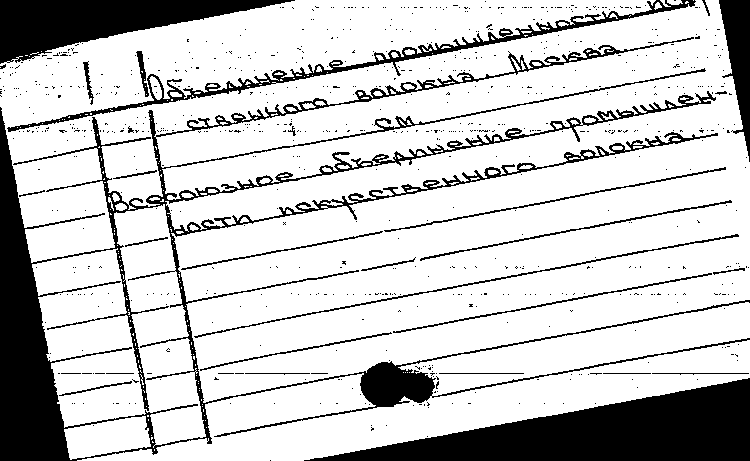 Объединение промышленности иск
ственного волокна. Москва
см.
Всесоюзное объединение промышлен-
ности искусственного волокна.